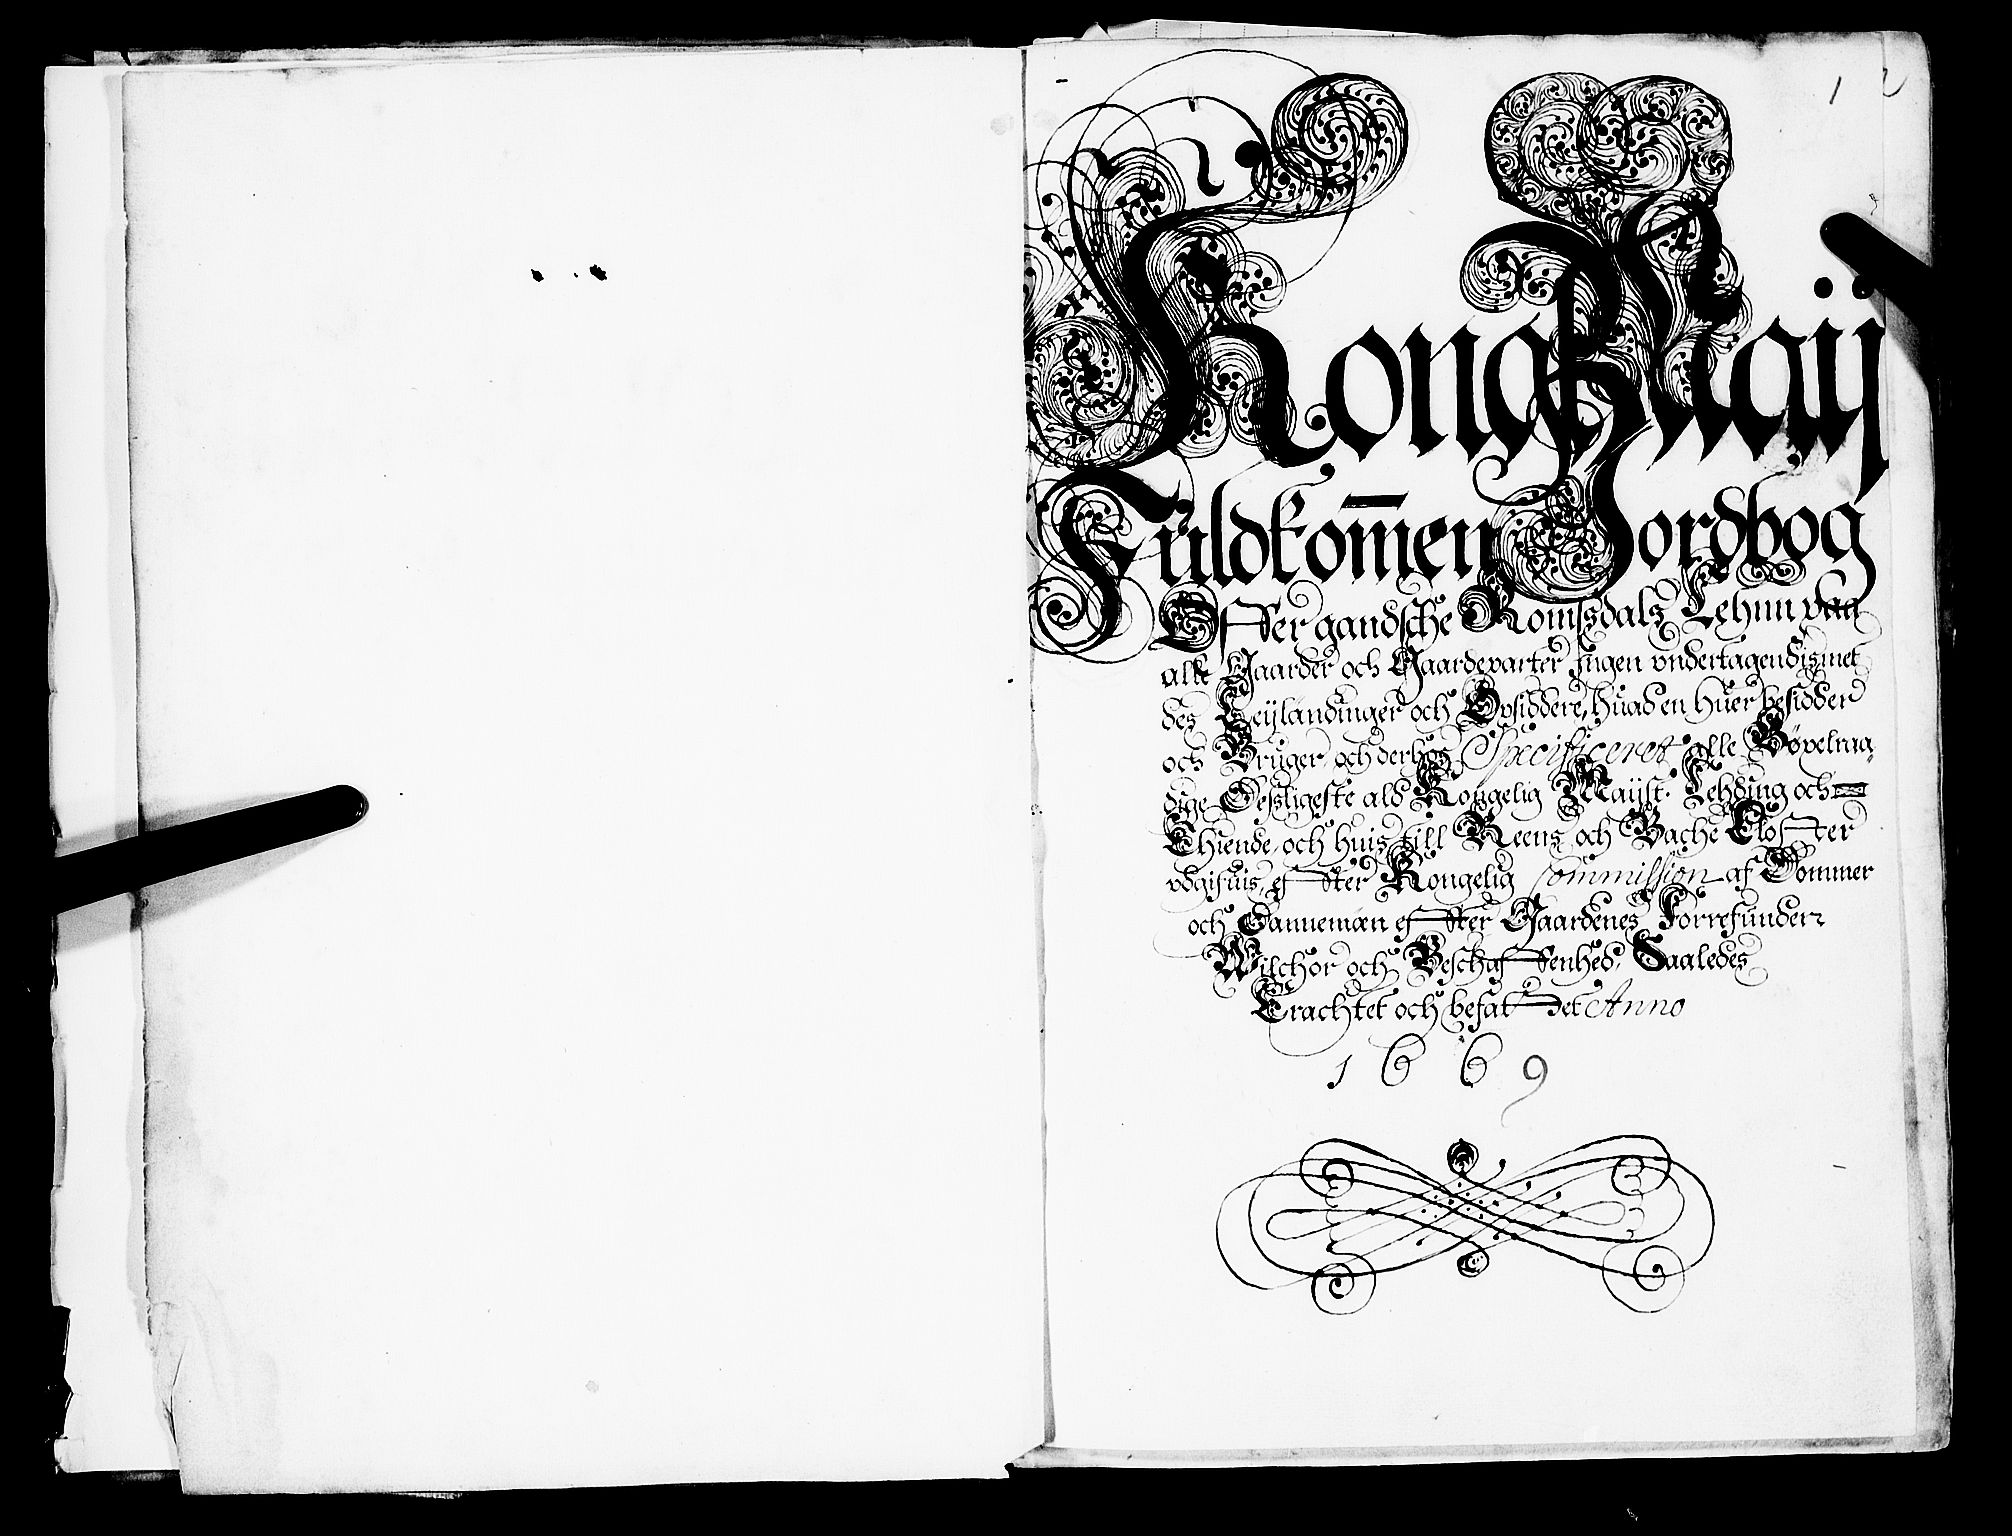 1 2
Kong Maÿ
Fuldkom̄en Jordbog
Offuer gandsche Romsdals Lehnn paa
alle Gaarder och Gaardeparter Jngen vndertagendis, met
des Leÿlændinger och Opsiddere, huad en huer besidder
och Bruger, och derhos Specificeret alle Bøxelraa„
dige, Desligeste ald Kongelig Maÿst. Lehding och
Thiende, och huis till Reens och Bache Closter
vdgifuis, effter Kongelig Commission af Dommer
och Dannemæn effter Gaardenes Forrefunder
Wilchor och Beschaffenhed, Saaledes
Trachtet och befattet Anno
1669